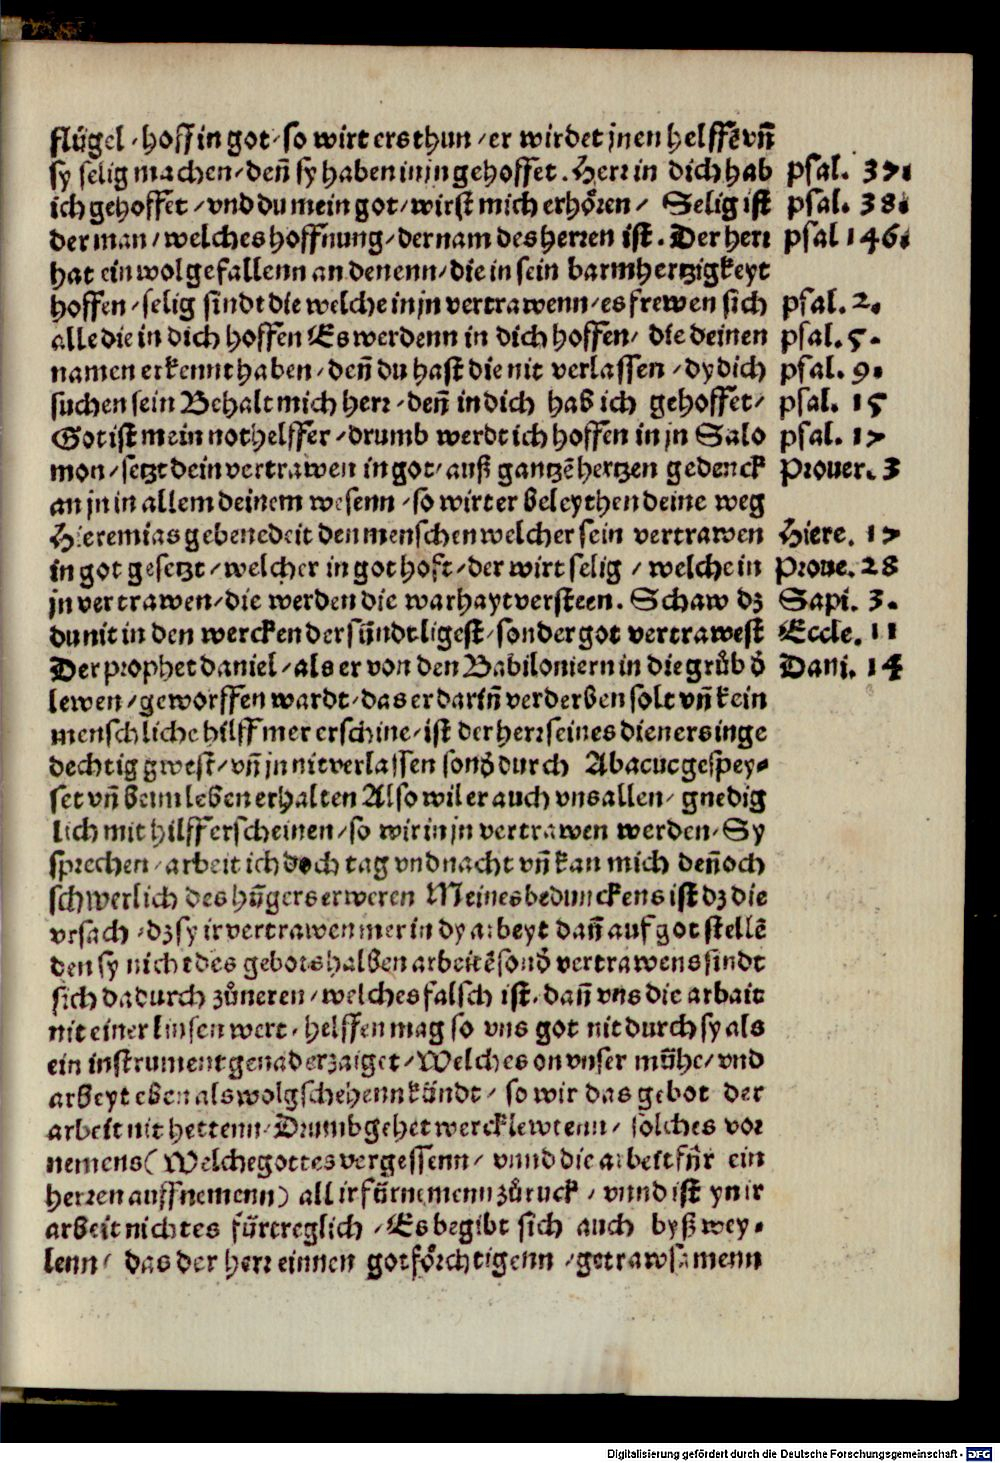 flügel / hoff in got / so wirt ers thun / er wirdet jnen helffē vñ
sy selig machen / deñ sy haben in jn gehoffet. Herr in dich hab psal. 37.
ich gehoffet / vnd du mein got / wirst mich erhören / Selig ist psal. 38.
der man / welches hoffnung / der nam des herren ist. Der herr psal 146.
hat ein wolgefallenn an denenn / die in sein barmhertzigkeyt
hoffen / selig sindt die welche in jn vertrawenn / es frewen sich psal. 2.
alle die in dich hoffen Es werdenn in dich hoffen / die deinen psal. 5.
namen erkennt haben / deñ du hast die nit verlassen / dy dich psal. 9.
suchen sein Behalt mich herr / deñ in dich hab ich gehoffet / psal. 15
Got ist mein nothelffer / drumb werdt ich hoffen in jn Salo psal. 17
mon / setzt dein vertrawen in got / auß gantzē hertzen gedenck Prouer. 3
an jn in allem deinem wesenn / so wirt er beleythen deine weg
Hieremias gebenedeit den menschen welcher sein vertrawen Hiere. 17
in got gesetzt / welcher in got hoft / der wirt selig / welche in Proue. 28
jn vertrawen / die werden die warhayt versteen. Schaw dz Sapi. 3.
du nit in den wercken der sündt ligest / sonder got vertrawest Eccle. 11
Der prophet daniel / als er von den Babiloniern in die grůb ð Dani. 14
lewen / geworffen wardt / das er dariñ verderben solt vñ kein
menschliche hilff mer erschine / ist der herr seines dieners inge
dechtig gwest / vñ jn nit verlassen sonð durch Abacuc gespey⸗
set vñ beim leben erhalten Also wil er auch vns allen / gnedig
lich mit hilff erscheinen / so wir in jn vertrawen werden / Sy
sprechen / arbeit ich doch tag vnd nacht vñ kan mich deñoch
schwerlich des hūgers erweren Meines bedunckens ist dz die
vrsach / dz sy ir vertrawen mer in dy arbeyt dañ auf got stellē
den sy nicht des gebots halben arbeitē sonð vertrawens sindt
sich dadurch zůneren / welches falsch ist / dañ vns die arbait
nit einer linsen wert / helffen mag so vns got nit durch sy als
ein instrument genad erzaiget / Welches on vnser mühe / vnd
arbeyt eben als wol gschehenn kündt / so wir das gebot der
arbeit nit hettenn / Drumb gehet wercklewtenn / solches vor
nemens (Welche gottes vergessenn / vnnd die arbeit für ein
herren auffnemenn) all ir fürnemenn zůruck / vnnd ist yn ir
arbeit nichtes fürtreglich / Es begibt sich auch byß wey⸗
lenn / das der herr einnen gotförchtigenn / getrawsamenn
Digitalisierung gefördert durch die Deutsche Forschungsgemeinschaft - DFG